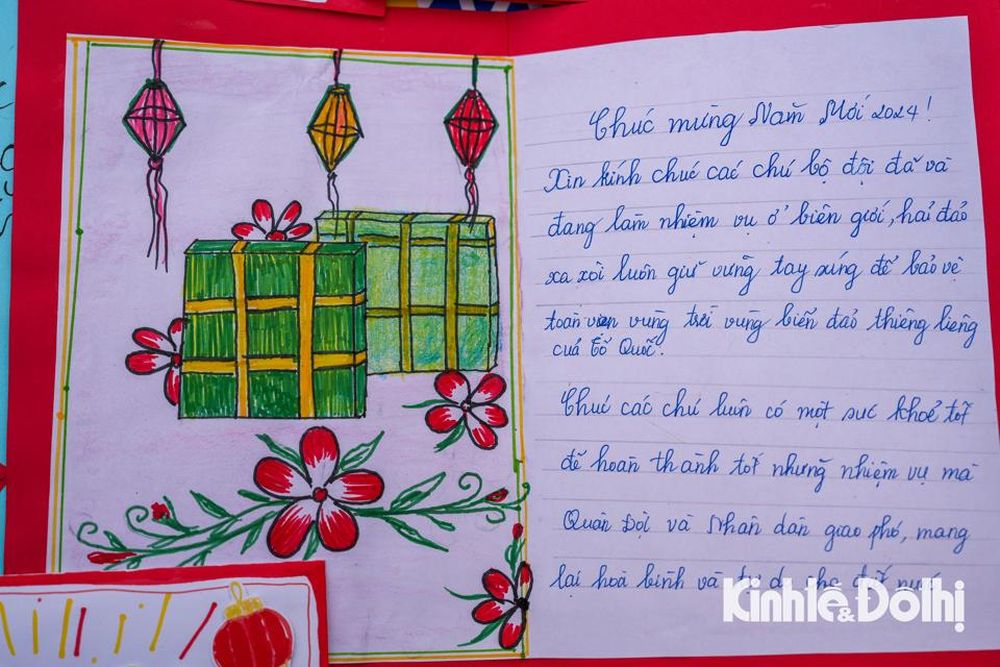 Chúc mừng Năm Mới 2024!
Xin kính chúc các chú bộ đội đã và
đang làm nhiệm vụ ở biên giới, hải đảo
xa xôi luôn giữ vững tay súng để bảo vệ
toàn vẹn vùng trời vùng biển đảo thiêng liêng
của Tổ Quốc.
Chúc các chú luôn có một sức khoẻ tốt
để hoàn thành tốt những nhiệm vụ mà
Quân Đội và Nhân dân giao phó, mang
lại hoà bình và tự do cho đất nước
Kinhtế&Đôthị